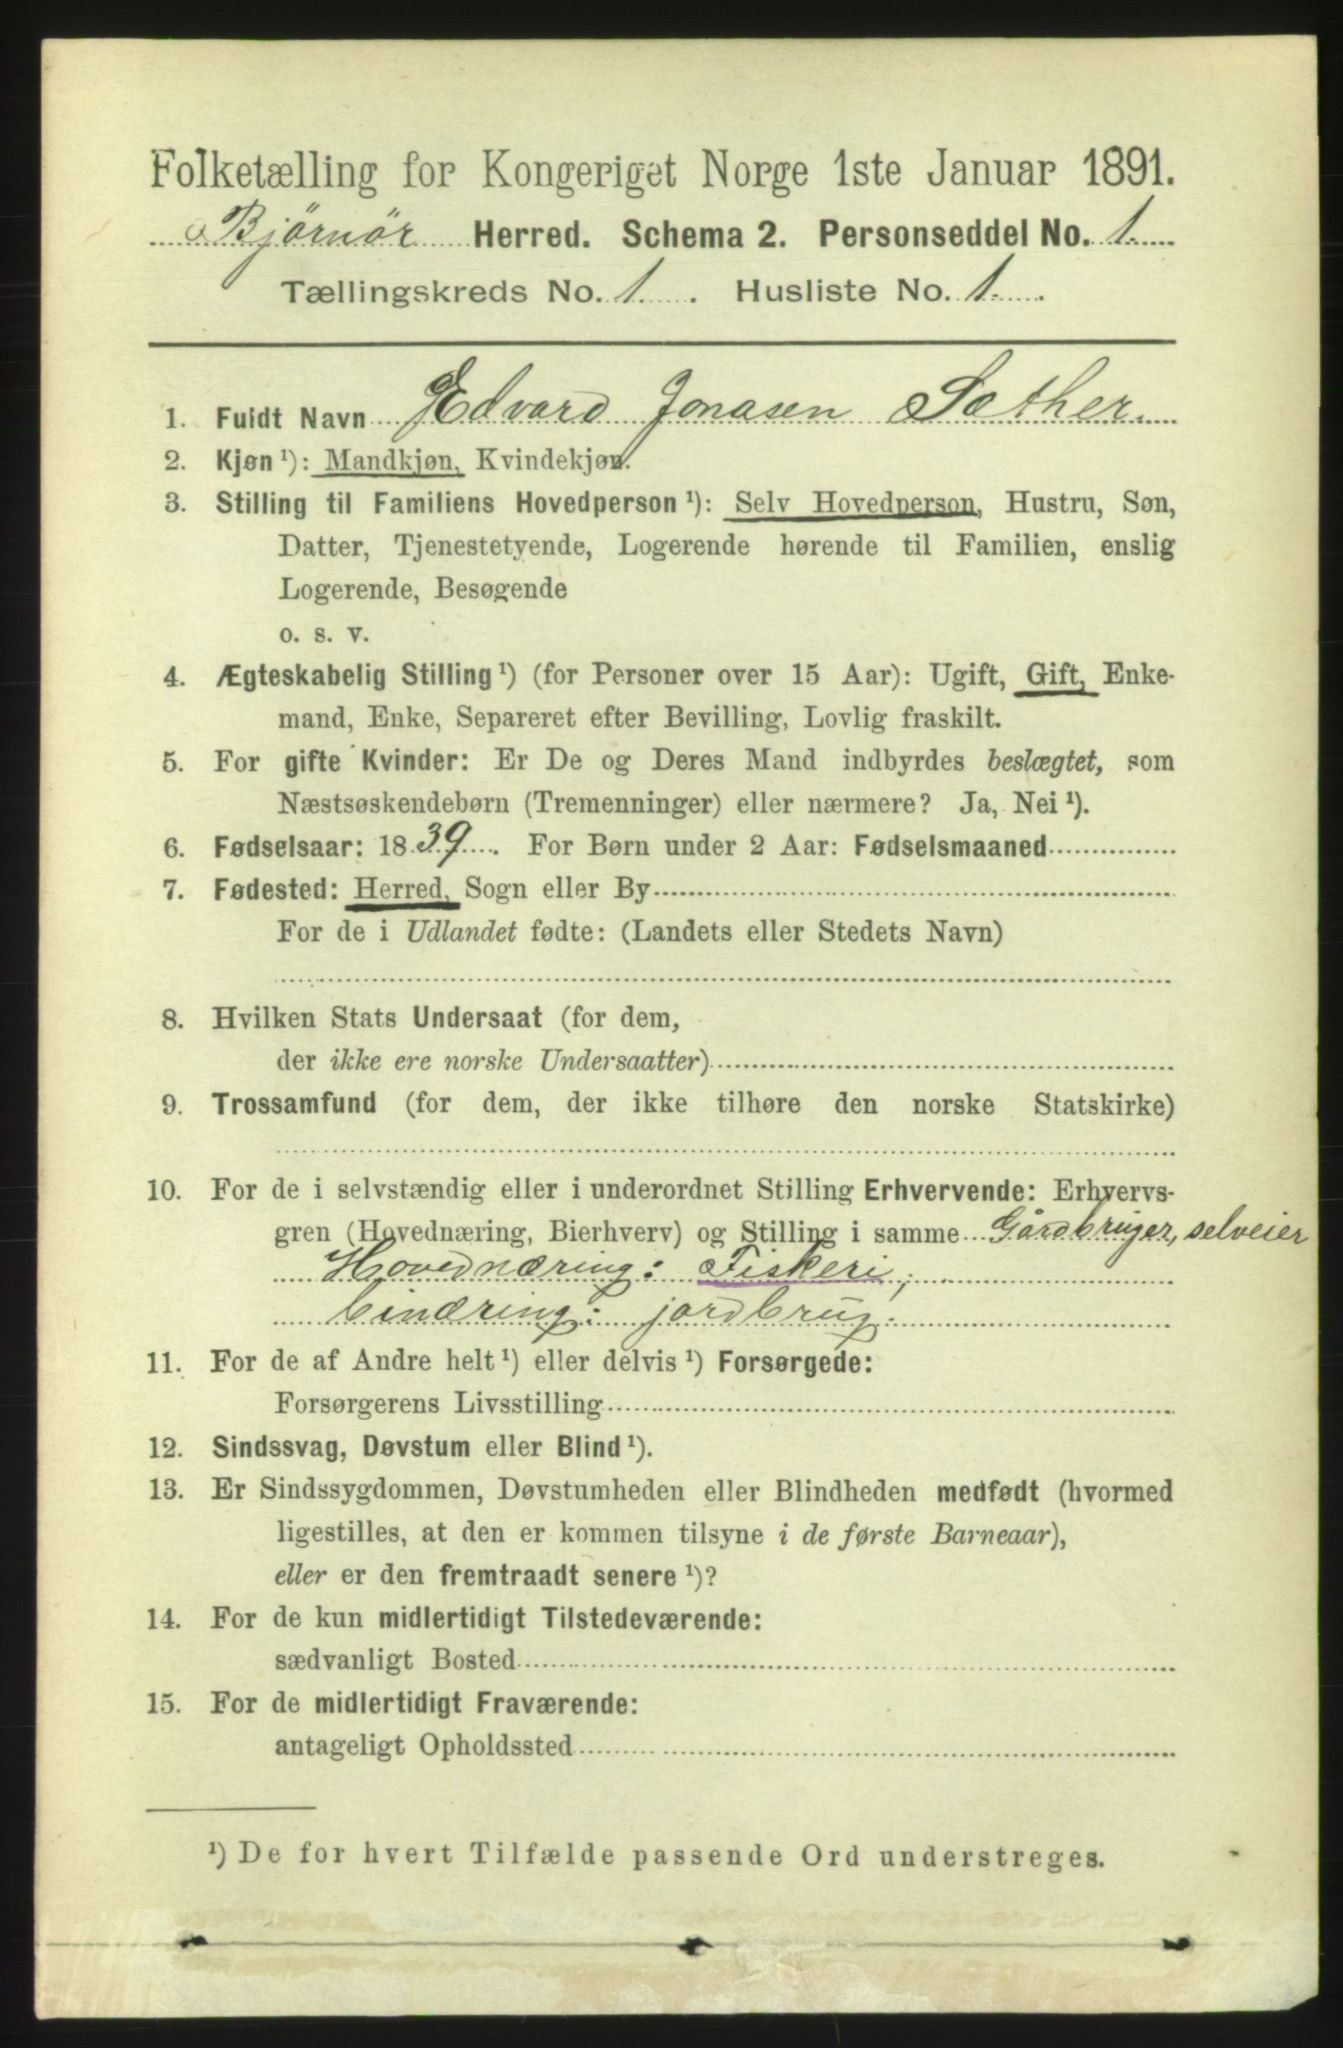 Folketælling for Kongeriget Norge 1ste Januar 1891.
Bjørnør Herred. Schema 2. Personseddel No. 1.
Tællingskreds No. 1. Husliste No. 1.
1. Fuldt Navn Edvard Jonasen Sæther.
2. Kjøn ¹): Mandkjøn, Kvindekjøn.
3. Stilling til Familiens Hovedperson ¹): Selv Hovedperson, Hustru, Søn,
Datter, Tjenestetyende, Logerende hørende til Familien, enslig
Logerende, Besøgende
o. s. v.
4. Ægteskabelig Stilling ¹) (for Personer over 15 Aar): Ugift, Gift, Enke-
mand, Enke, Separeret efter Bevilling, Lovlig fraskilt.
5. For gifte Kvinder: Er De og Deres Mand indbyrdes beslægtet, som
Næstsøskendebørn (Tremenninger) eller nærmere? Ja, Nei ¹).
6. Fødselsaar: 1839. For Børn under 2 Aar: Fødselsmaaned
7. Fødested: Herred, Sogn eller By
For de i Udlandet fødte: (Landets eller Stedets Navn)
8. Hvilken Stats Undersaat (for dem,
der ikke ere norske Undersaatter)
9. Trossamfund (for dem, der ikke tilhøre den norske Statskirke)
10. For de i selvstændig eller i underordnet Stilling Erhvervende: Erhvervs-
gren (Hovednæring, Bierhverv) og Stilling i samme Gårdbruger, selveier
Hovednæring: Fiskeri;
binæring: jordbrug.
11. For de af Andre helt ¹) eller delvis ¹) Forsørgede:
Forsørgerens Livsstilling
12. Sindssvag, Døvstum eller Blind ¹).
13. Er Sindssygdommen, Døvstumheden eller Blindheden medfødt (hvormed
ligestilles, at den er kommen tilsyne i de første Barneaar),
eller er den fremtraadt senere ¹)?
14. For de kun midlertidigt Tilstedeværende:
sædvanligt Bosted
15. For de midlertidigt Fraværende:
antageligt Opholdssted
¹) De for hvert Tilfælde passende Ord understreges.